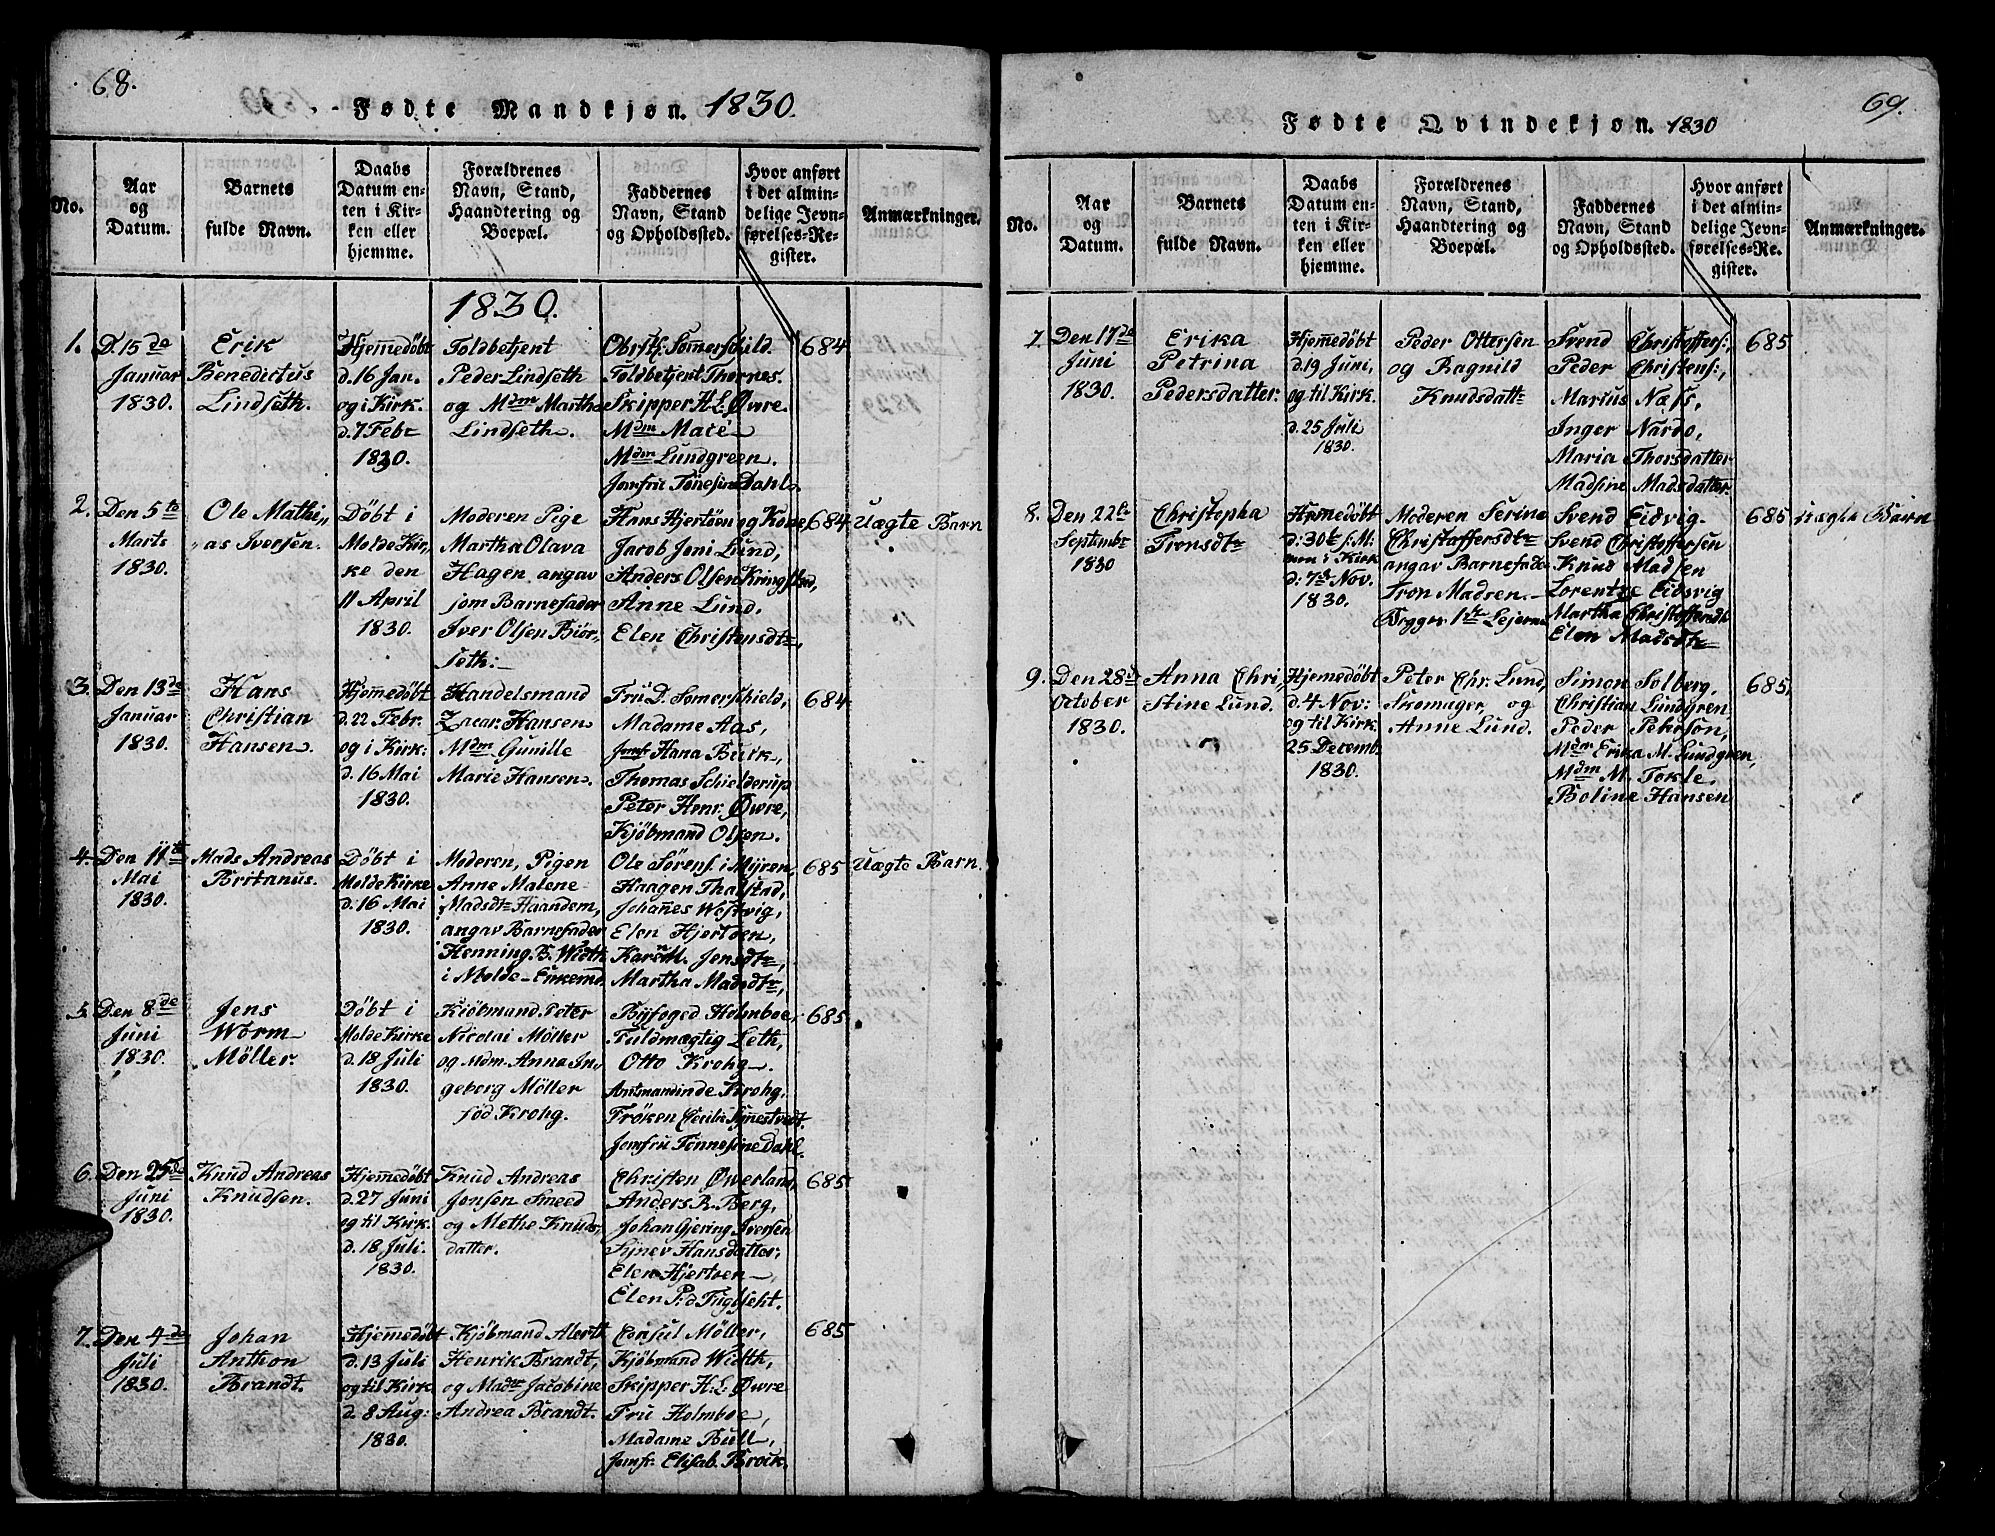 68.
Fødte Mandkjøn. 1830.
No.
Aar
og
Datum.
Barnets
fulde Navn.
Daabs
Datum en-
ten i Kir-
ken eller
hjemme.
Forældrenes
Navn, Stand,
Haandtering og
Boepæl.
Faddernes
Navn, Stand
og Opholdssted.
Hvor anført
i det almin-
delige Jevn-
førelses-Re-
gister.
Anmærkninger.
1830.
1.
D. 15de
Januar
1830.
Erik
Benedictus
Lindseth.
Hjemmedöbt
d. 16 Jan.
og i Kirk.
d. 7 Febr
1830.
Toldbetjent
Peder Lindseth
og Mdm Martha
Lindseth.
Obrstl. Sommerschild.
Toldbetjent Thornes.
Skipper H. L. Øvre.
Mdm Maie
Mdm Lundgreen.
Jomfru Tönesine Dahl.
684
2.
Den 5te
Marts
1830.
Ole Mathi,,
,,as Iversen.
Döbt i
Molde Kir,
ke den
11 April
1830.
Moderen Pige
Martha Olava
Hagen angav
som Barnefader
Iver Olsen Biör,
seth.
Hans Hjertöen og Kone,
Jacob Joni Lund,
Anders Olsen Kringstad,
Anne Lund.
Elen Christensdtr,
684
Uægte Barn
3.
Den 13de
Januar
1830.
Hans
Christian
Hansen.
Hjemmedöbt
d. 22 Febr.
og i Kirk:
d. 16 Mai
1830.
Handelsmand
Zacar. Hansen
Mdm Gunille
Marie Hansen.
Fru D. Somerschield,
Madame Aas,
Jomfr Hana Buck,
Thomas Schielderup
Peter Henr. Øvre,
Kjöbmand Olsen.
684
4.
Den 11te
Mai
1830.
Mads Andreas
Britanus.
Döbt i
Molde Kirke
d: 16 Mai
1830.
Moderen, Pigen
Anne Malene
Madsdtr Haandem,
angav Barnefader
Henning B. Width
i Molde - Enkemd
Ole Sörens. i Myren,
Kaagen Thalstad,
Johannes Westvig,
Elen Hjertöen,
Karen M. Jensdtr,
Martha Madsdtr,
685
Uægte Barn.
5.
Den 8de
Juni
1830.
Jens
Worm
Möller.
Döbt i
Molde Kirke
d. 18 Juli
1830.
Kiöbmand Peter
Nicolai Möller
og Mdm. Anna In,
geborg Möller
föd Krohg.
Byfoged Holmboe,
Fuldmægtig Leth,
Otto Krohg.
Amtmandinde Krohg.
Fröken Cecilie Synnestvedt.
Jomfru Tönnesine Dahl.
685
6.
Den 25de
Juni
1830.
Knud Andreas
Knudsen.
Hjemmedöbt
d. 27 Juni
og til Kirk.
d. 18 Juli.
1830.
Knud Andreas
Jonsen Smeed
og Methe Knuds,
datter.
Christen Øverland,
Anders R. Berg,
Johan Gjering Iversen
Synev Hansdatter,
Elen Hjertöen
Elen P.d Fuglseht.
685
7.
Den 4de
Juli
1830.
Johan
Anthon
Brandt.
Hjemmedöbt
d. 13 Juli
og til Kirk.
d. 8 Aug:
1830.
Kjöbmand Alerth
Henrik Brandt,
og Madm Jacobine
Andrea Brandt.
Consul Möller,
Kjöbmand Width,
Skipper H. L. Øvre
Fru Holmboe,
Madame Bull,
Jomfr. Elisab. Brock.
685
69.
Fødte Qvindekjøn. 1830
No.
Aar
og
Datum.
Barnets
fulde Navn.
Daabs
Datum en-
ten i Kir-
ken eller
hjemme.
Forældrenes
Navn, Stand,
Haandtering og
Boepæl.
Faddernes
Navn, Stand
og Opholdssted.
Hvor anført
i det almin-
delige Jevn-
førelses-Re-
gister.
Anmærkninger.
7.
Den 17de
Juni
1830.
Erika
Petrina
Pedersdatter.
Hjemmedöbt
d. 19 Juni,
og til Kirk.
d. 25 Juli
1830.
Peder Ottersen
og Ragnild
Knudsdattr
Svend Christoffers:,
Peder Christens:,
Marius Næss,
Inger Nardo,
Maria Thorsdatter
Madsine Madsdatter.
685
8.
Den 22de
Septembr
1830
Christopha
Tronsdtr
Hjemmedöbt
d: 30te s. M.
men i Kirk
d: 7de Nov.
1830.
Moderen Serine
Christoffersdtr
angav Barnefader
Tron Madsen.
Begges 1ste Lejerm
Svend Eidvig.
Svend Christoffersen
Knud Madsen
Lorentze Eidsvig
Martha Christoffersdtr
Elen Madsdtr
685
Uægte Barn
9.
Den 28de
October
1830.
Anna Chri,,
stine Lund.
Hjemmedöbt
d. 4 Nov:
og til Kirk.
25 Decemb.
1830.
Peter Chr. Lund,
Skomager, og
Anne Lund.
Simon Solberg,
Christian Lundgren,
Peder Peterson,
Mdm Erika M. Lundgren,
Mdm M. Tokle.
Boline Hansen
685